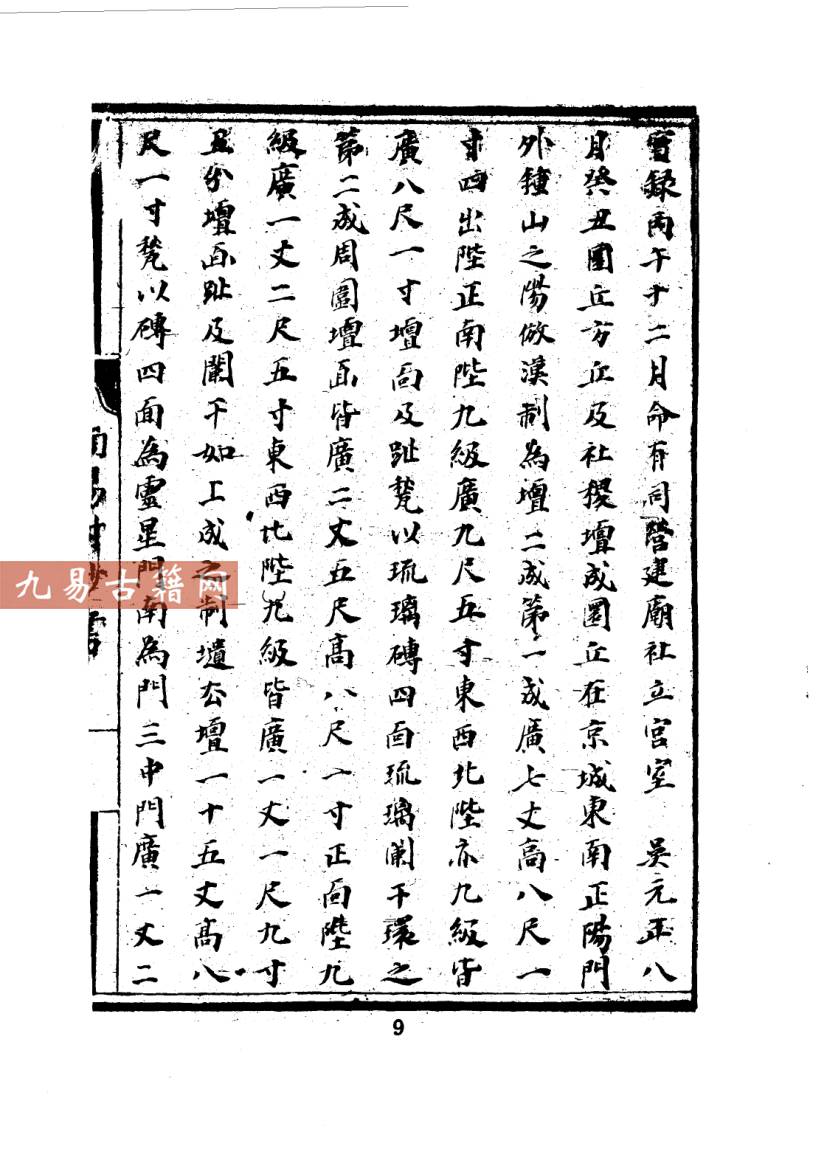 實録丙午十二月命有司營建廟社立宮室　吳元年八
月癸丑圜丘方丘及社稷壇成圜丘在京城東南正陽門
外鐘山之陽倣漢制為壇二成第一成廣七丈高八尺一
寸四出陛正南陛九級廣九尺五寸東西北陛亦九級皆
廣八尺一寸壇面及趾甃以琉璃磚四面琉璃闌干環之
第二成周圍壇面皆廣二丈五尺高八尺一寸正面陛九
級廣一丈二尺五寸東西北陛九級皆廣一丈一尺九寸
五分壇面趾及闌干如上成之制壝去壇一十五丈高八
尺一寸甃以磚四面為靈星門南為門三中門廣一丈二
九易古籍网
9